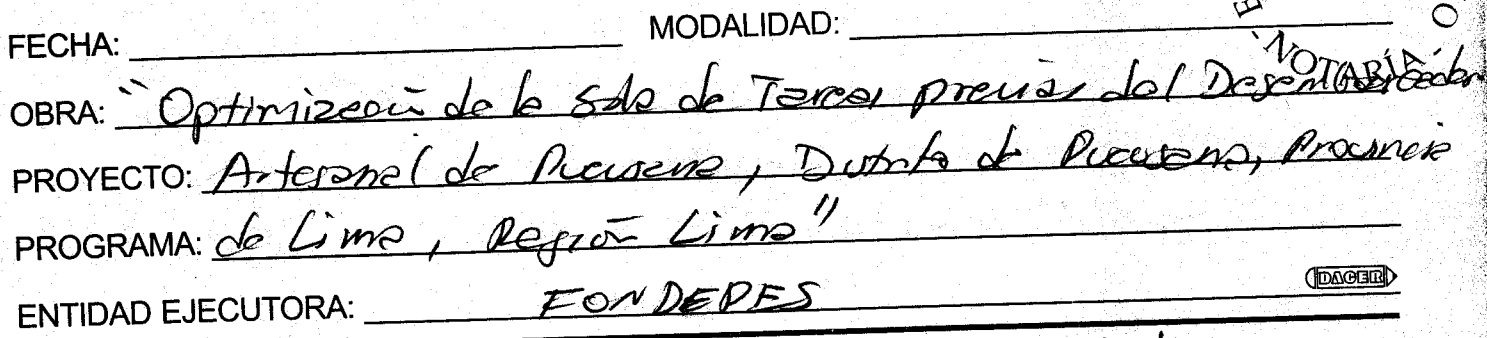 FECHA: MODALIDAD:
NOTARIA
OBRA: "Optimización de la Sala de Tareas previas del Desembarcadero
PROYECTO: Artesanal de Pucusana, Distrito de Pucusana, Provincia
PROGRAMA: de Lima, Región Lima"
DACER
ENTIDAD EJECUTORA: FONDEPES